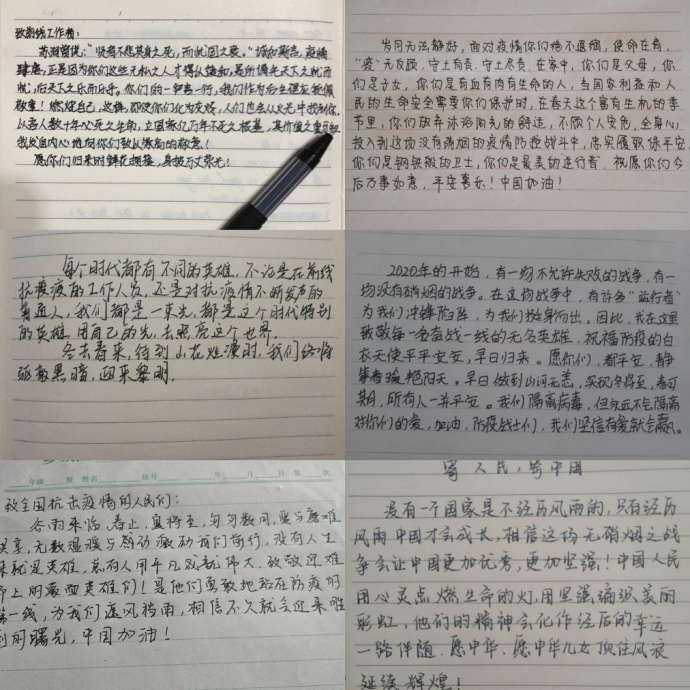 致前线工作者：
苏洵曾说："贤者不悲其身之死，而忧其国之衰。"城如斯言，疫情
肆虐，正是因为你们这些无私之人才得以缓和，是所谓先天下之忧而
忧，后天下之乐而乐。你们的一举一行，我们作为后生理应敬佩
我发自内心地向你们致以崇高的敬意！
愿你们归来时鲜花拥簇，身披万丈荣光！
岁月无法静好，面对疫情你们绝不退缩，使命在肩，
"疫"无反顾，守土有责，守土尽责。在家中，你们是父母，你
们是子女，你们是有血有肉有生命的人，当国家利益和人
民的生命安全需要你们保护时，在春天这个富有生机的季
节里，你们放弃沐浴阳光的舒适，不顾个人安危，全身心
投入到这场没有硝烟的疫情防控战斗中，忠实履职保平安，
你们是钢铁般的卫士，你们是最美的逆行者，祝愿你们今
后万事如意，平安喜乐！中国加油！
每个时代都有不同的英雄，不论是在前线
抗疫疫的工作人员，还是对抗疫情不断发声的
普通人，我们都是一束光，都是这个时代特别
的英雄，用自己的光，去照亮这个世界。
冬去春来，待到山花烂漫时，我们终将
驱散黑暗，迎来黎明。
2020年的开始，有一场不允许失败的战争，有一
场没有硝烟的战争。在这场战争中，有许多"逆行者"
为我们冲锋陷阵，为我们挺身而出。因此，我在这里
致敬每一名奋战一线的无名英雄，祝福防疫的白
衣天使平平安安，早日归来。愿你们，都平安，静
待艳阳天。早日做到山河无恙，寒冬将至，春可
期，所有人一并平安。我们隔离病毒，但永远不会隔离
对你们的爱，加油，防疫战士们，我们坚信有爱就会赢。
年级 班 姓名 座号 年 月 日 第 次
致全国抗击疫情的人民们：
冬雨来临，春止，夏将至，匆匆数月，要与磨难
共享，无数温暖与感动激励我们前行，没有人生
来就是英雄，总有人用平凡成就伟大，致敬迎难
而上的最美英雄们！是他们勇敢地站在防疫的
第一线，为我们遮风挡雨，相信不久就会迎来胜
利的曙光，中国加油！
寄人民，写中国
没有一个国家是不经历风雨的，只有经历
风雨中国才会成长，相信这场无硝烟之战
争会让中国更加优秀，更加坚强！中国人民
用心灵点燃生命的灯，用坚强编织美丽
彩虹，他们的精神会化作经后的幸运
一路伴随，愿中华，愿中华儿女顶住风浪
延续辉煌！